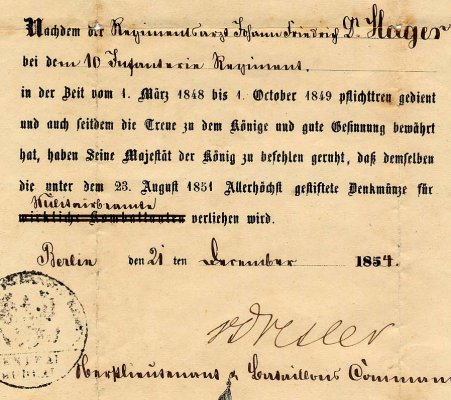 Nachdem der Regimentsarzt Johann Friedrich Dr. Hager
bei dem 10 Infanterie Regiment.
in der Zeit vom 1. März 1848 bis 1. October 1849 pflichttreu gedient
und auch seitdem die Treue zu dem Könige und gute Gesinnung bewährt
hat, haben Seine Majestät der König zu befehlen geruht, daß demselben
die unter dem 23. August 1851 Allerhöchst gestiftete Denkmünze für
Militairbeamte
wirkliche Kombattanten verliehen wird.
Berlin den 21 ten December 1854.
Oberstlieutenant & Bataillons Comman